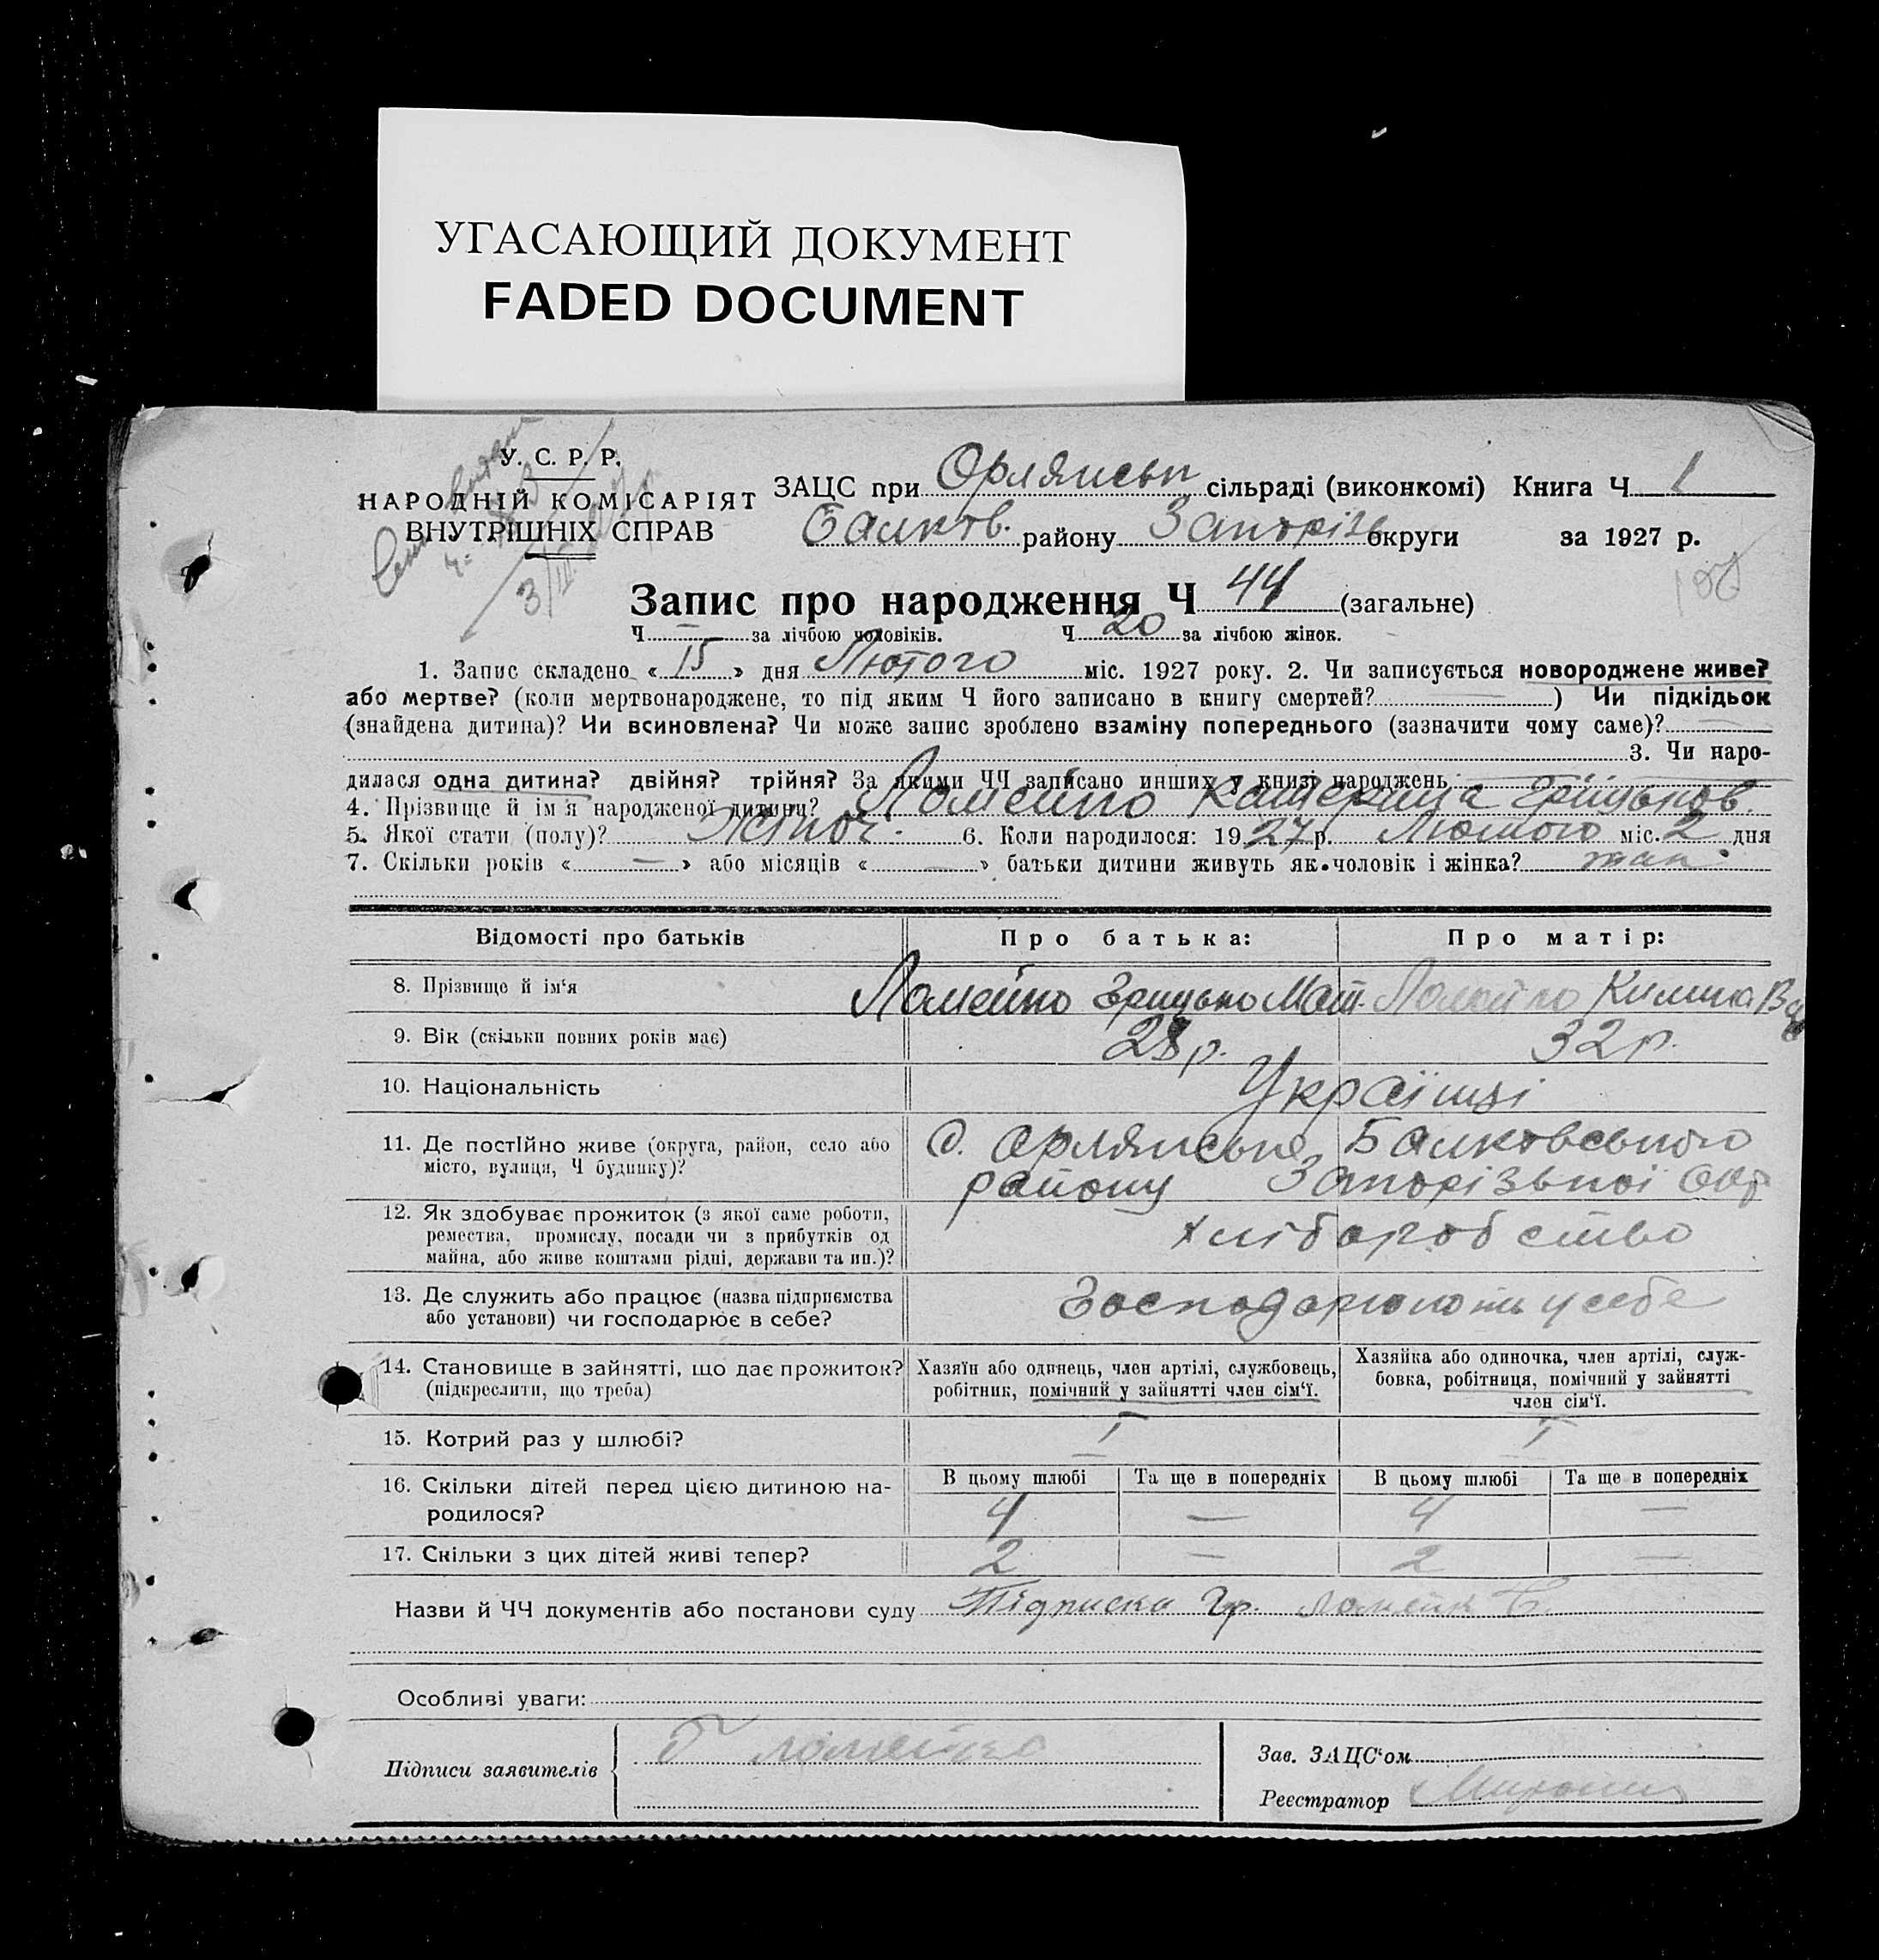 УГАСАЮЩИЙ ДОКУМЕНТ
FADED DOCUMENT
У. С. Р. Р.
НАРОДНІЙ КОМІСАРІЯТ
ВНУТРІШНІХ СПРАВ
3/III
ЗАЦС при Орлянськ сільраді (виконкомі) Книга Ч 1
Балков. району Запоріз округи за 1927 р.
Запис про народження Ч 44 (загальне)
Ч — за лічбою чоловіків. Ч 20 за лічбою жінок.
1. Запис складено « 15 » дня Лютого міс. 1927 року. 2. Чи записується новороджене живе?
або мертве? (коли мертвонароджене, то під яким Ч його записано в книгу смертей? — ) Чи підкідьок
(знайдена дитина)? Чи всиновлена? Чи може запис зроблено взаміну попереднього (зазначити чому саме)? —
3. Чи наро-
дилася одна дитина? двійня? трійня? За якими ЧЧ записано инших у книзі народжень —
4. Прізвище й ім'я народженої дитини? Ломейко Катерина Грицьков.
5. Якої стати (полу)? Жіноч. 6. Коли народилося: 1927 р. Лютого міс. 2 дня
7. Скільки років « — » або місяців « — » батьки дитини живуть як чоловік і жінка?
Відомості про батьків Про батька: Про матір:
8. Прізвище й ім'я Ломейко Грицько Мат. Ломейко Килина
9. Вік (скільки повних років має) 28 р. 32 р.
10. Національність Українці
11. Де постійно живе (округа, район, село або
місто, вулиця, Ч будинку)?
С. Орлянське Балковського
району Запорізької окр
12. Як здобуває прожиток (з якої саме роботи,
ремества, промислу, посади чи з прибутків од
майна, або живе коштами рідні, держави та ин.)?
хліборобство
13. Де служить або працює (назва підприємства
або установи) чи господарює в себе?
Господарюють у себе
14. Становище в зайнятті, що дає прожиток?
(підкреслити, що треба)
Хазяїн або одинець, член артілі, службовець,
робітник, помічний у зайнятті член сім'ї.
Хазяйка або одиночка, член артілі, служ-
бовка, робітниця, помічний у зайнятті
член сім'ї.
15. Котрий раз у шлюбі? I I
16. Скільки дітей перед цією дитиною на-
родилося?
В цьому шлюбі Та ще в попередніх В цьому шлюбі Та ще в попередніх
4 — 4 —
17. Скільки з цих дітей живі тепер? 2 — 2 —
Назви й ЧЧ документів або постанови суду Підписка гр. Ломейк
Особливі уваги:
Підписи заявителів Г Ломейко
Зав. ЗАЦС'ом
Реєстратор